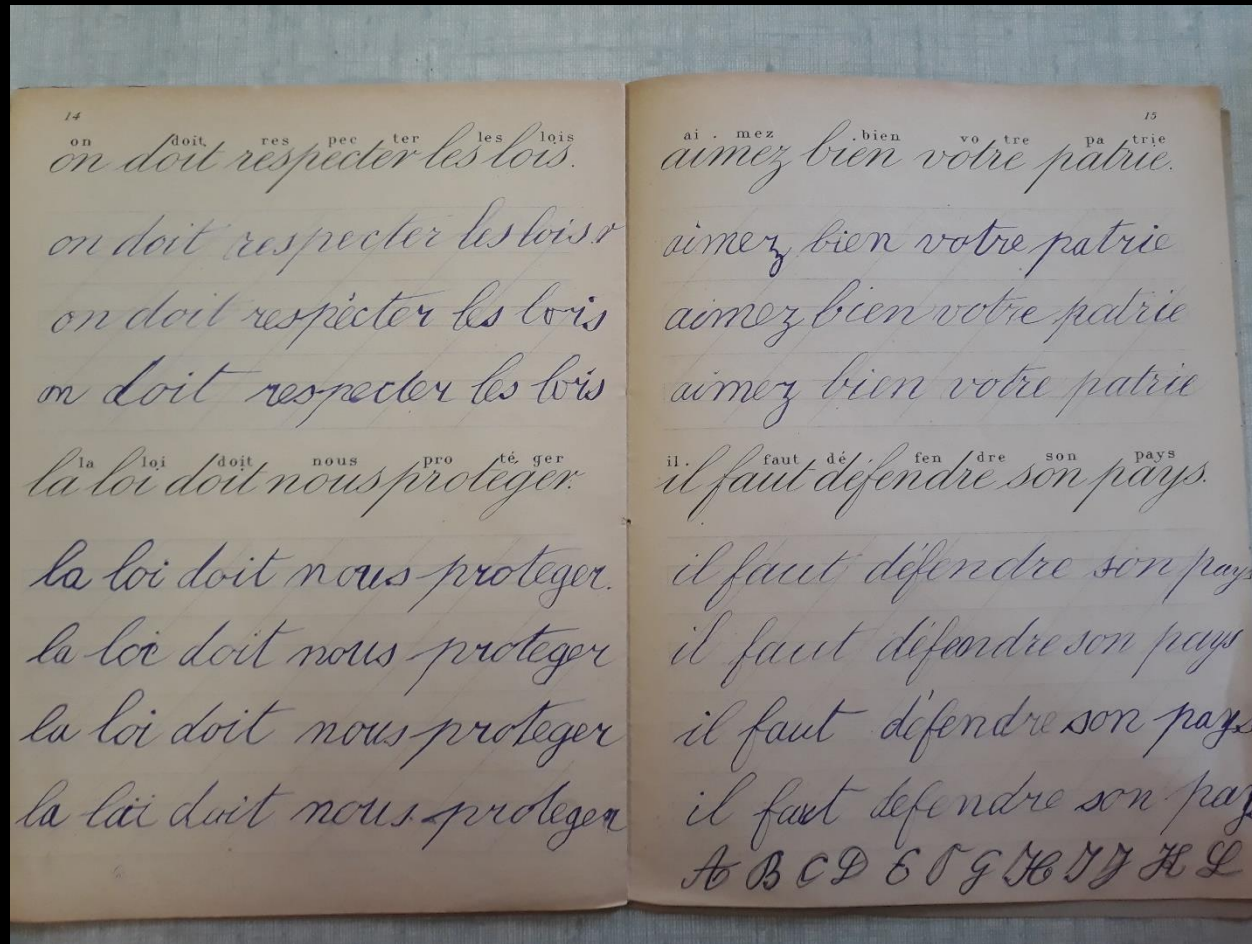 14
on doit res pec ter les lois
on doit respecter les lois.
on doit respecter les lois
on doit respécter les lois
on doit respecter les lois
la loi doit nous pro té ger
la loi doit nous protéger.
la loi doit nous proteger.
la loi doit nous proteger
la loi doit nous proteger
la loi doit nous proteger
15
ai . mez . bien vo tre pa trie
aimez bien votre patrie.
aimez bien votre patrie
aimez bien votre patrie
aimez bien votre patrie
il . faut dé fen dre son pays
il faut défendre son pays.
il faut défendre son pays
il faut défendre son pays
il faut défendre son pays
il faut defendre son pay
A B C D E F G H I J K L